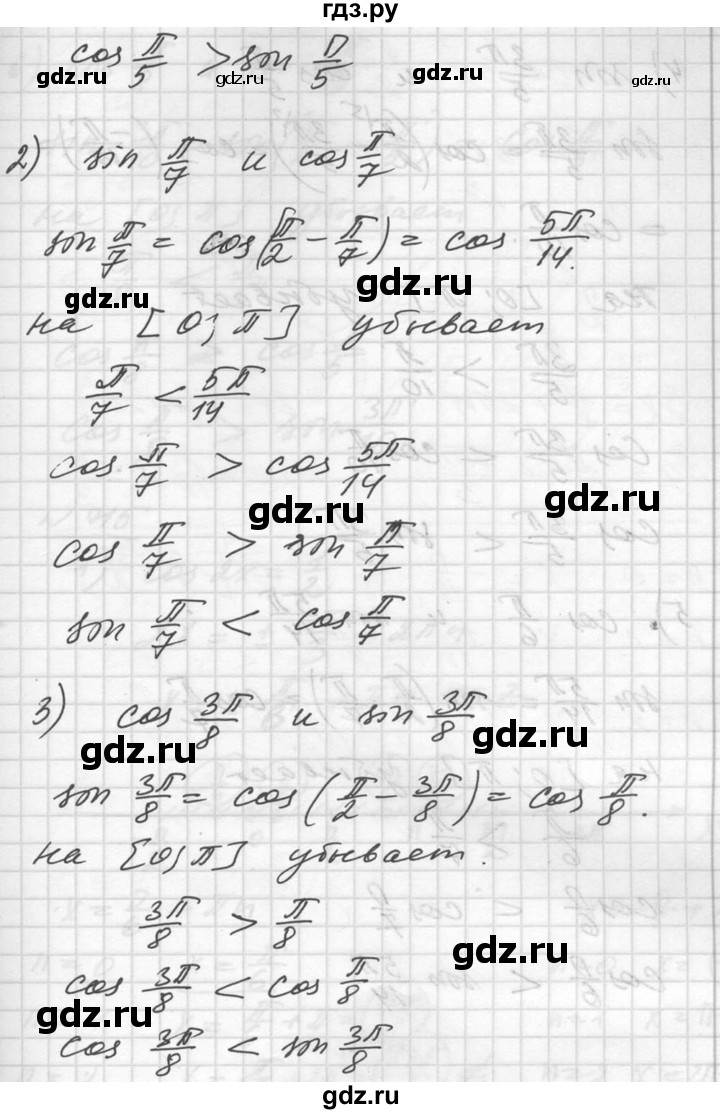 гдз.ру
cos π/5 > sin π/5
gdz.ru gdz.ru gdz.ru gdz.ru
2) sin π/7 и cos π/7
sin π/7 = cos(π/2 − π/7) = cos 5π/14.
gdz.ru gdz.ru
на [0; π] убывает
π/7 < 5π/14
cos π/7 > cos 5π/14
gdz.ru gdz.ru
cos π/7 > sin π/7
sin π/7 < cos π/7
3) cos 3π/8 и sin 3π/8
gdz.ru gdz.ru
sin 3π/8 = cos(π/2 − 3π/8) = cos π/8.
на [0; π] убывает.
3π/8 > π/8
gdz.ru
cos 3π/8 < cos π/8
gdz.ru
cos 3π/8 < sin 3π/8
gdz.ru